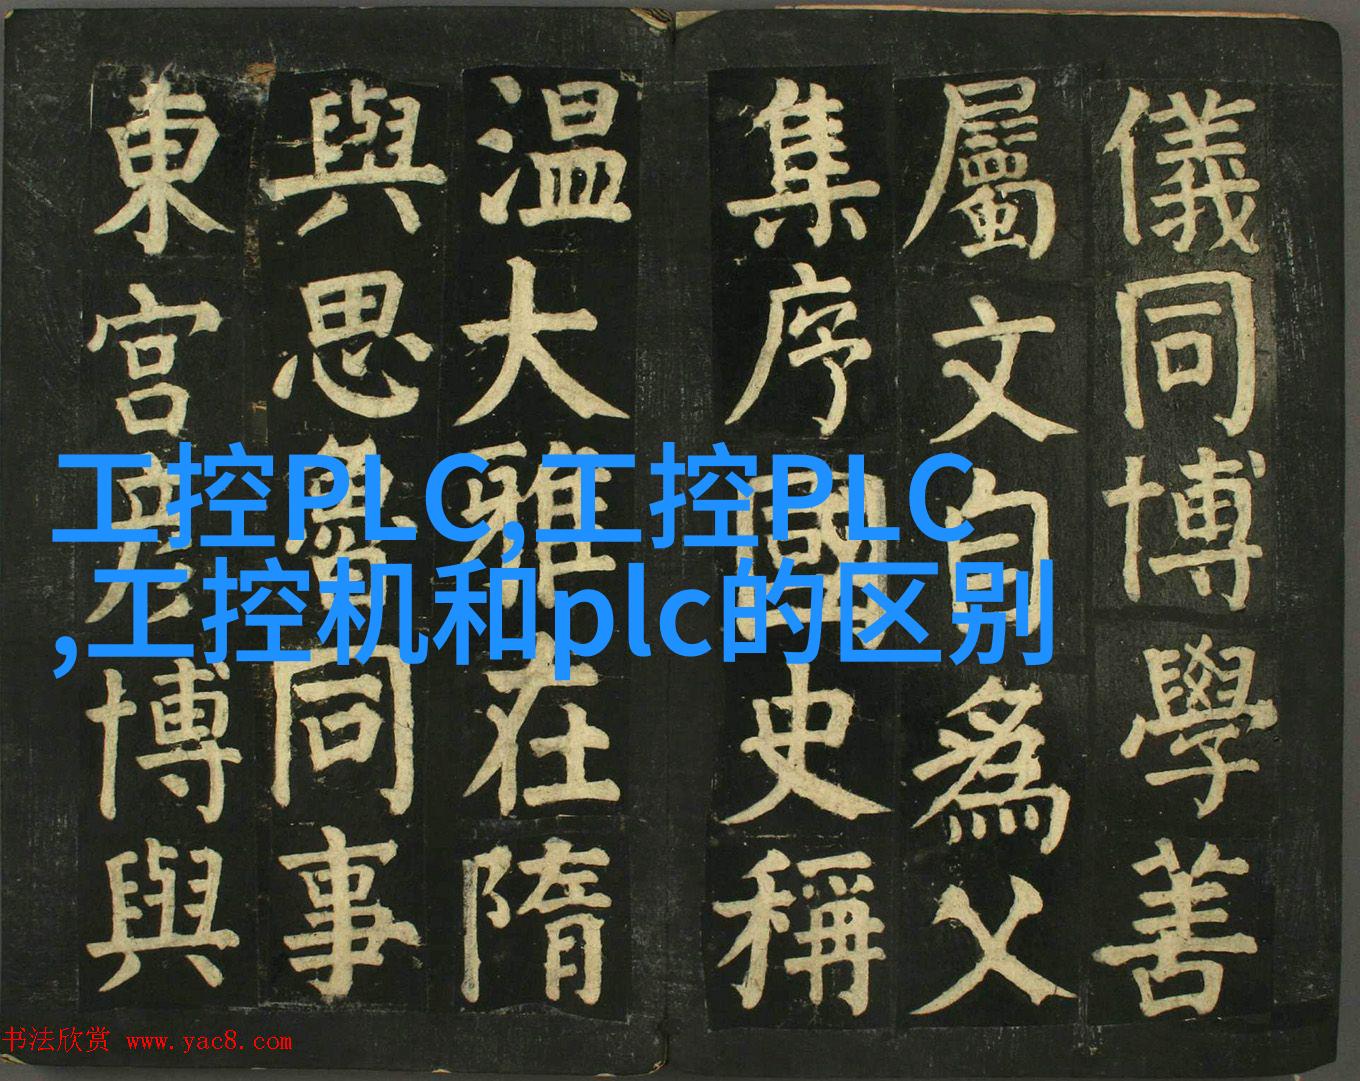 儀同博學善
屬文自為父
集序國史稱
温大雅在隋
與思魯同事
東宮彥博與
工控PLC,工控PLC
,工控机和plc的区别
书法欣赏 www.yac8.com